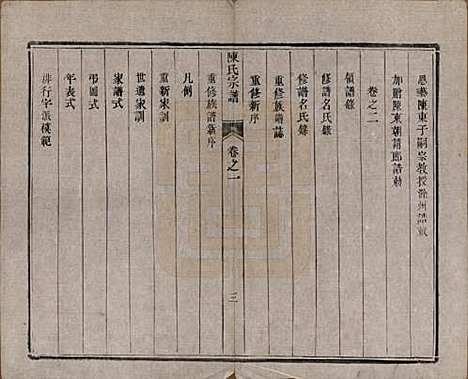 恩藝陳東子嗣宗教授滁州誥敕
加贈陳東朝請郎誥敕
卷之二
領譜錄
修譜名氏錄
修譜名氏錄
重修族譜誌
重修新序
陳氏宗譜
卷之一
三
重修族譜新序
凡例
重新家訓
世遺家訓
家譜式
弔圖式
年表式
排行字派模範